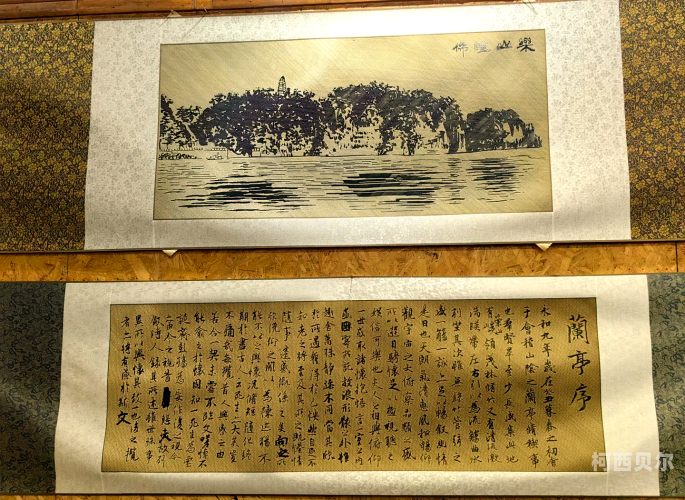 樂山睡佛
蘭亭序
永和九年歲在癸丑暮春之初會
于會稽山陰之蘭亭脩稧事
也羣賢畢至少長咸集此地
有崇山峻領茂林脩竹又有清流激
湍暎帶左右引以為流觴曲水
列坐其次雖無絲竹管弦之
盛一觴一詠亦足以暢敘幽情
是日也天朗氣清惠風和暢仰
觀宇宙之大俯察品類之盛
所以遊目騁懷足以極視聽之
娛信可樂也夫人之相與俯仰
一世或取諸懷抱悟言一室之內
或因寄所託放浪形骸之外雖
趣舍萬殊靜躁不同當其欣
於所遇蹔得於己快然自足不
知老之將至及其所之既惓情
隨事遷感慨係之矣向之所
欣俛仰之閒以為陳迹猶不
能不以之興懷況脩短隨化終
期於盡古人云死生亦大矣豈
不痛哉每攬昔人興感之由
若合一契未嘗不臨文嗟悼不
能喻之於懷固知一死生為虛
誕齊彭殤為妄作後之視今
亦由今之視昔悲夫故列
敘時人錄其所述雖世殊事
異所以興懷其致一也後之攬
者亦將有感於斯文
柯西贝尔